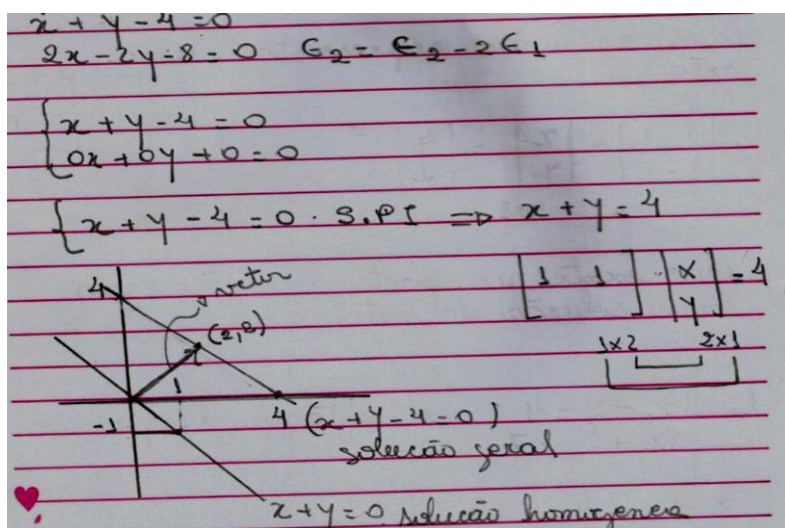 x + y - 4 = 0
2x - 2y - 8 = 0 E2 = E2 - 2E1
x + y - 4 = 0
0x + 0y + 0 = 0
x + y - 4 = 0 . S.PI => x + y = 4
[1 1] . [x y] = 4
1x2 2x1
4 vetor
(2,2)
1
-1 4 (x + y - 4 = 0)
solução geral
x + y = 0 solução homogenea